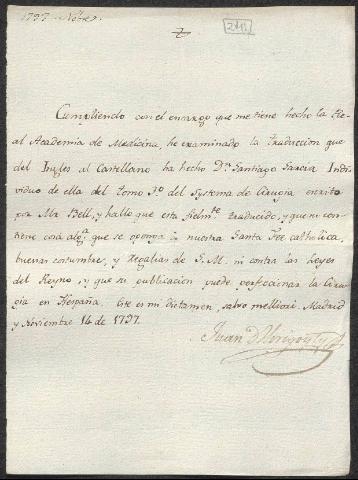 1797 Nōbre
211
Cumpliendo con el encargo que me tiene hecho la Re-
al Academia de Medicina, he examinado la traduccion que
del Ingles al Castellano ha hecho Dn Santiago Garcia Indi-
viduo de ella del tomo 3o del Systema de Cirugia escrito
por Mr Bell, y hallo que esta fielmte traducido, y que ni con-
tiene cosa algª que se oponga a nuestra Santa Fee catholica,
buenas costumbres, y Regalias de S. M. ni contra las Leyes
del Reyno, y que su publicacion puede perfeccionar la Ciru-
gia en Hespaña. Este es mi dictamen, salvo melliori. Madrid
y Noviembre 14 de 1797.
Juan